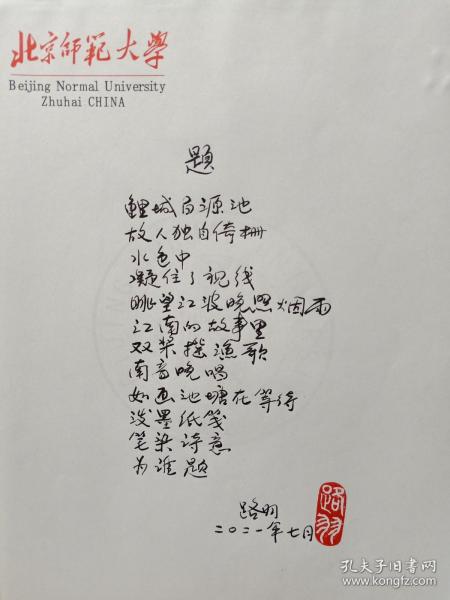 北京师范大学
Beijing Normal University
Zhuhai CHINA
题
鲤城百源池
故人独自倚栅
水色中
凝住了视线
眺望江波晚照烟雨
江南的故事里
双桨摇渔歌
南音晚唱
如画池塘在等待
泼墨纸笺
笔染诗意
为谁题
路羽
二〇二一年七月
路羽
孔夫子旧书网
www.kongfz.com